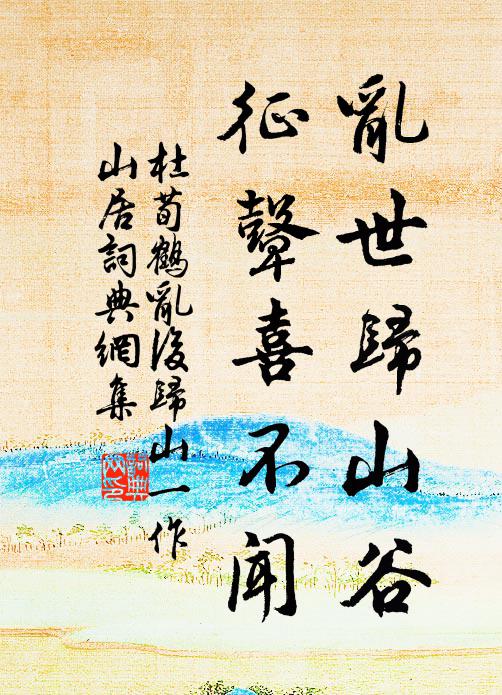 亂世歸山谷
征鼙喜不聞
杜荀鶴亂後歸山一作
山居詞典網集